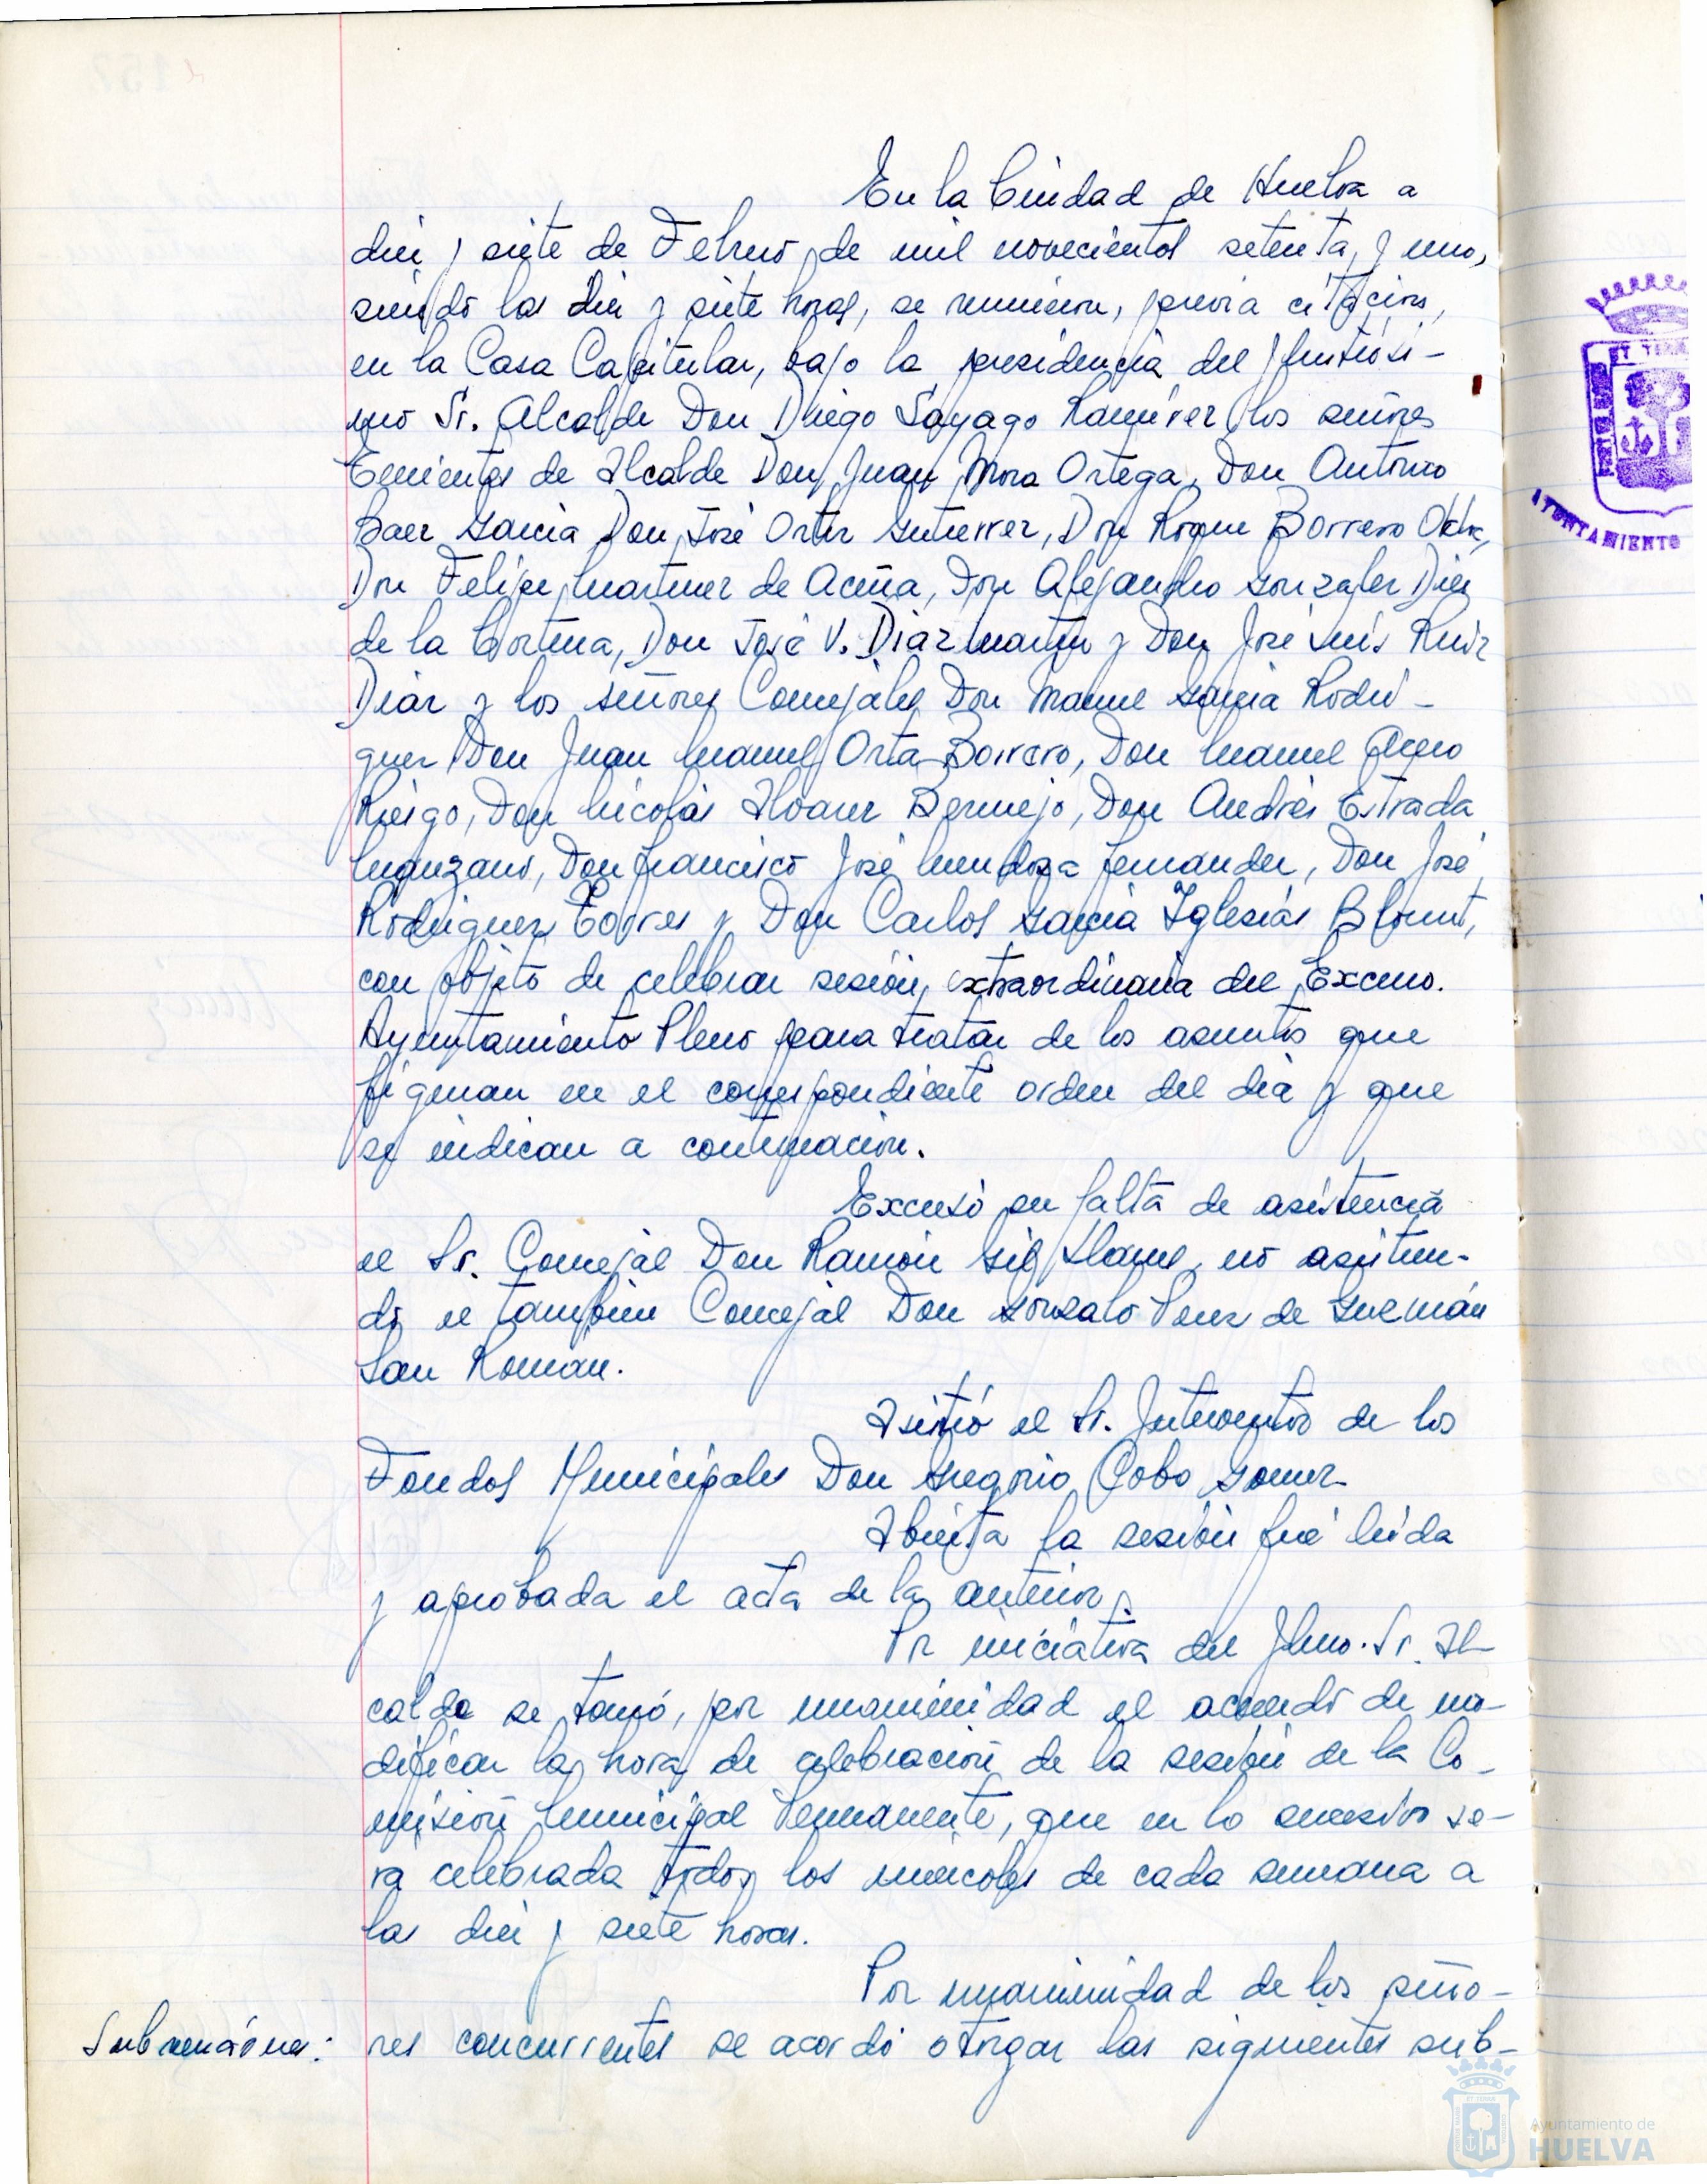 En la Ciudad de Huelva a
diez y siete de Febrero de mil novecientos setenta y uno,
siendo las diez y siete horas, se reunieron, previa citación,
en la Casa Capitular, bajo la presidencia del Ilustrísi-
mo Sr. Alcalde Don Diego Sayago Ramírez los señores
Tenientes de Alcalde Don Juan Mora Ortega, Don Antonio
Baez García Don José Ortiz Gutierrez, Don Roque Borrero Ochoa,
Don Felipe Martinez de Acuña, Don Alejandro Gonzalez Diez
de la Cortina, Don José V. Diaz Martin y Don José Luis Ruiz
Diaz y los señores Concejales Don Manuel García Rodri-
guez Don Juan Manuel Orta Borrero, Don Manuel
Riesgo, Don Nicolás Alvarez Bermejo, Don Andrés Estrada
Manzano, Don Francisco José Mendoza Fernandez, Don José
Rodriguez Torres y Don Carlos García Iglesias Blount,
con objeto de celebrar sesión extraordinaria del Excmo.
Ayuntamiento Pleno para tratar de los asuntos que
figuran en el correspondiente orden del día y que
se indican a continuación.
Excusó su falta de asistencia
el Sr. Concejal Don Ramón Gil no asistien-
do el también Concejal Don Gonzalo Perez de Guzmán
San Roman.
Asistió el Sr. Interventor de los
Fondos Municipales Don Gregorio Cobo Gomez
Abierta la sesión fué leida
y aprobada el acta de la anterior.
Por iniciativa del Ilmo. Sr. Al-
calde se tomó, por unanimidad el acuerdo de mo-
dificar la hora de celebración de la sesión de la Co-
misión Municipal Permanente, que en lo sucesivo se-
rá celebrada todos los miercoles de cada semana a
las diez y siete horas.
Por unanimidad de los seño-
Subvenciones: res concurrentes se acordó otorgar las siguientes sub-
AYUNTAMIENTO
Ayuntamiento de
HUELVA